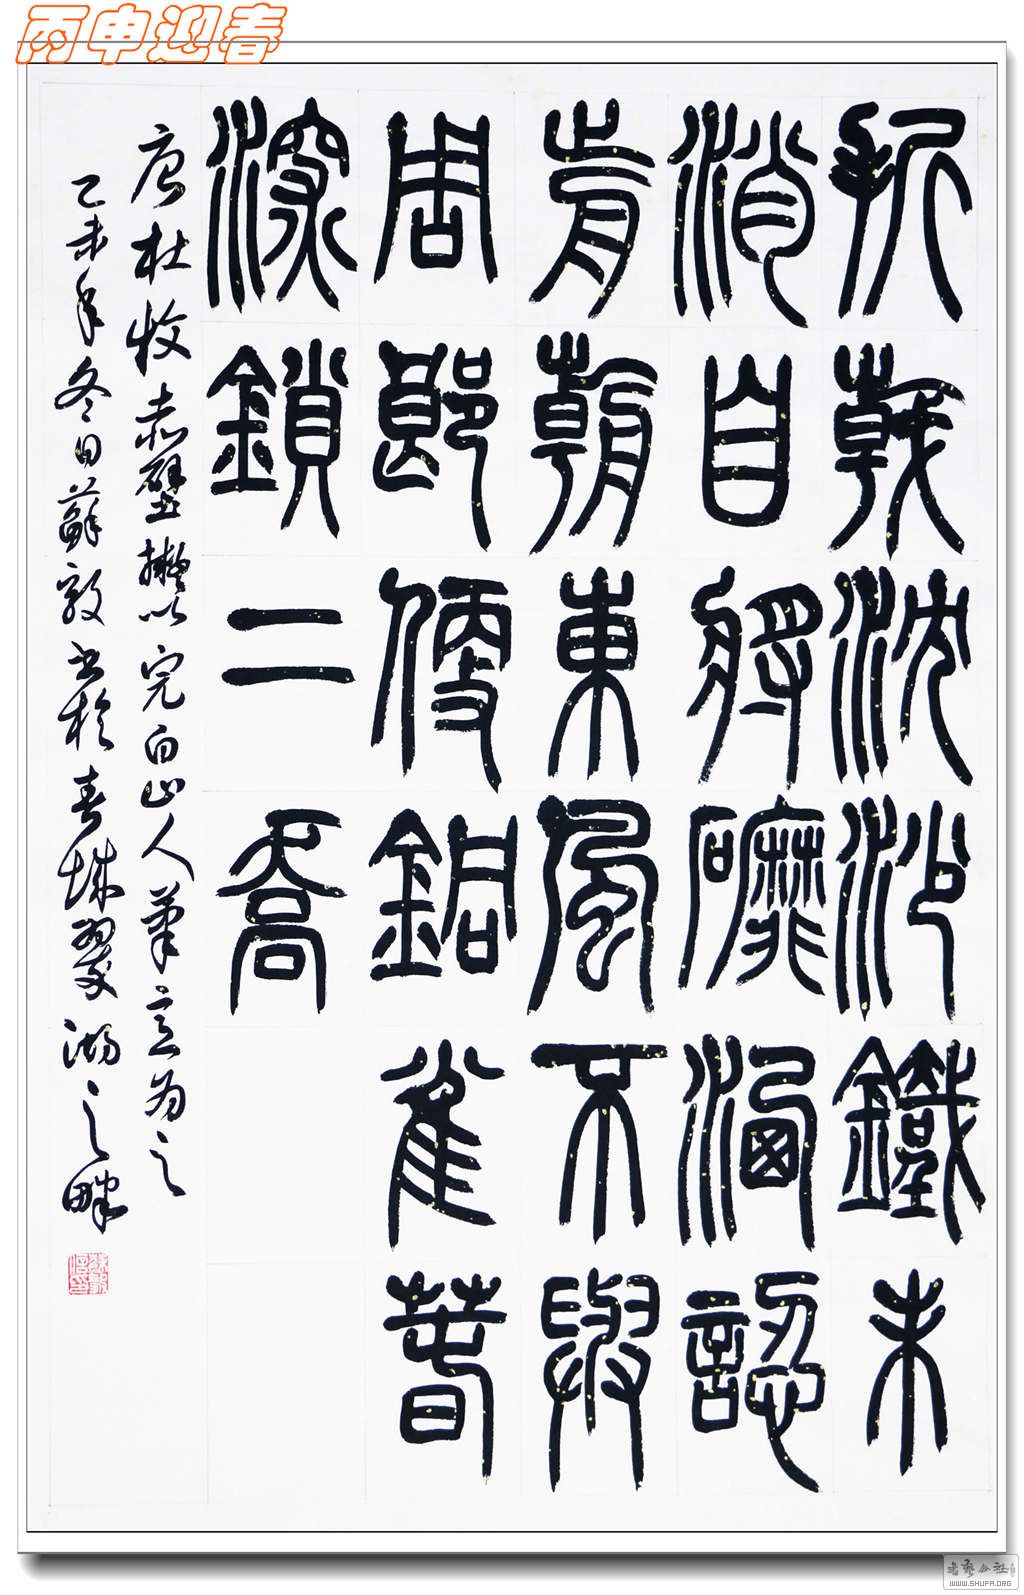 丙申迎春
折戟沈沙鐵未
消自將磨洗認
前朝東風不與
周郎便銅雀春
深鎖二喬
唐杜牧赤壁擬以完白山人筆意为之
乙未年冬日蘇敦书於春城翠湖之畔
书艺公社
WWW.SHUFA.ORG